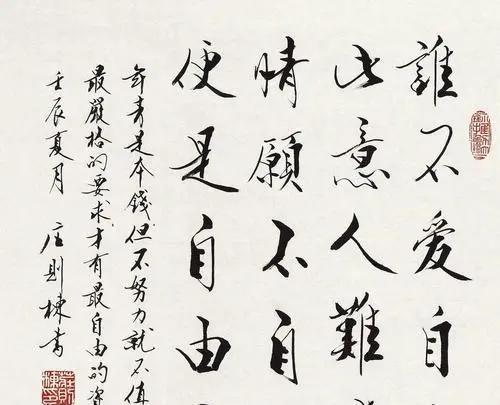 誰不爱自
此意人難
情願不自
便是自由
年青是本錢但不努力就不值
最嚴格的要求才有最自由的
壬辰夏月 庄則棟书